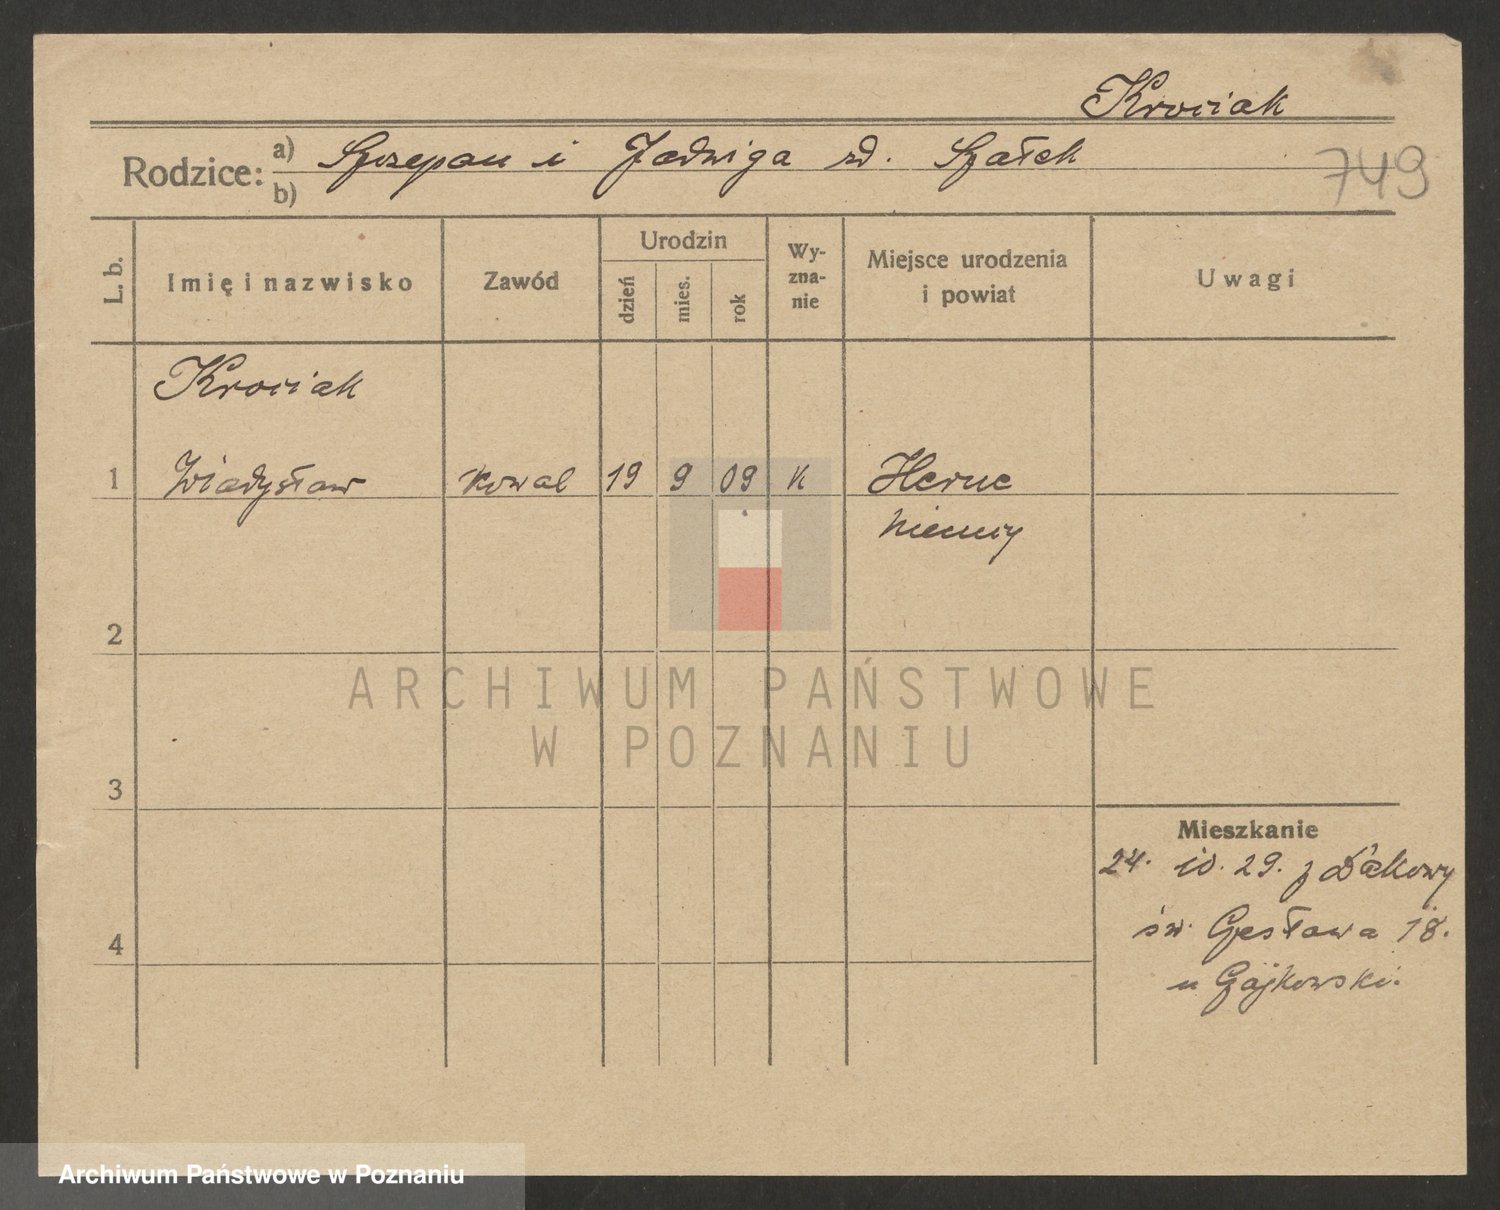 Krociak
Rodzice: a) Szczepan i Jadwiga zd. Szałek
b)
749
L. b.
Imię i nazwisko
Zawód
Urodzin
dzień
mies.
rok
Wy-
zna-
nie
Miejsce urodzenia
i powiat
Uwagi
Krociak
1 Władysław kowal 19 9 09 K Herne
Niemcy
2
3
4
Mieszkanie
24. 10. 29. z Dakowy
św. Czesława 18.
u Gajkowski.
ARCHIWUM PAŃSTWOWE
W POZNANIU
Archiwum Państwowe w Poznaniu